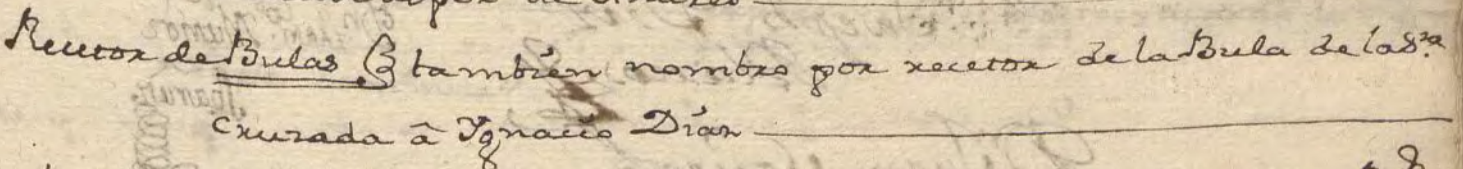 de
Recetor de Bulas también nombro por recetor de la Bula de la S.ta
Cruzada â Ygnacio Díaz